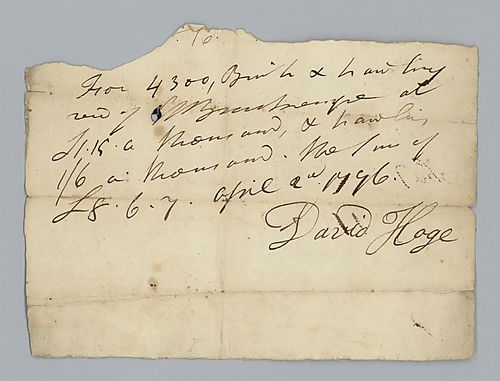 To
For 4300, Brick & hawling
recd of at
£1.18. a thousand, & hawling
1/6 a thousand. the Sum of
£8. 6. 7. april 2d 1796.
David Hoge